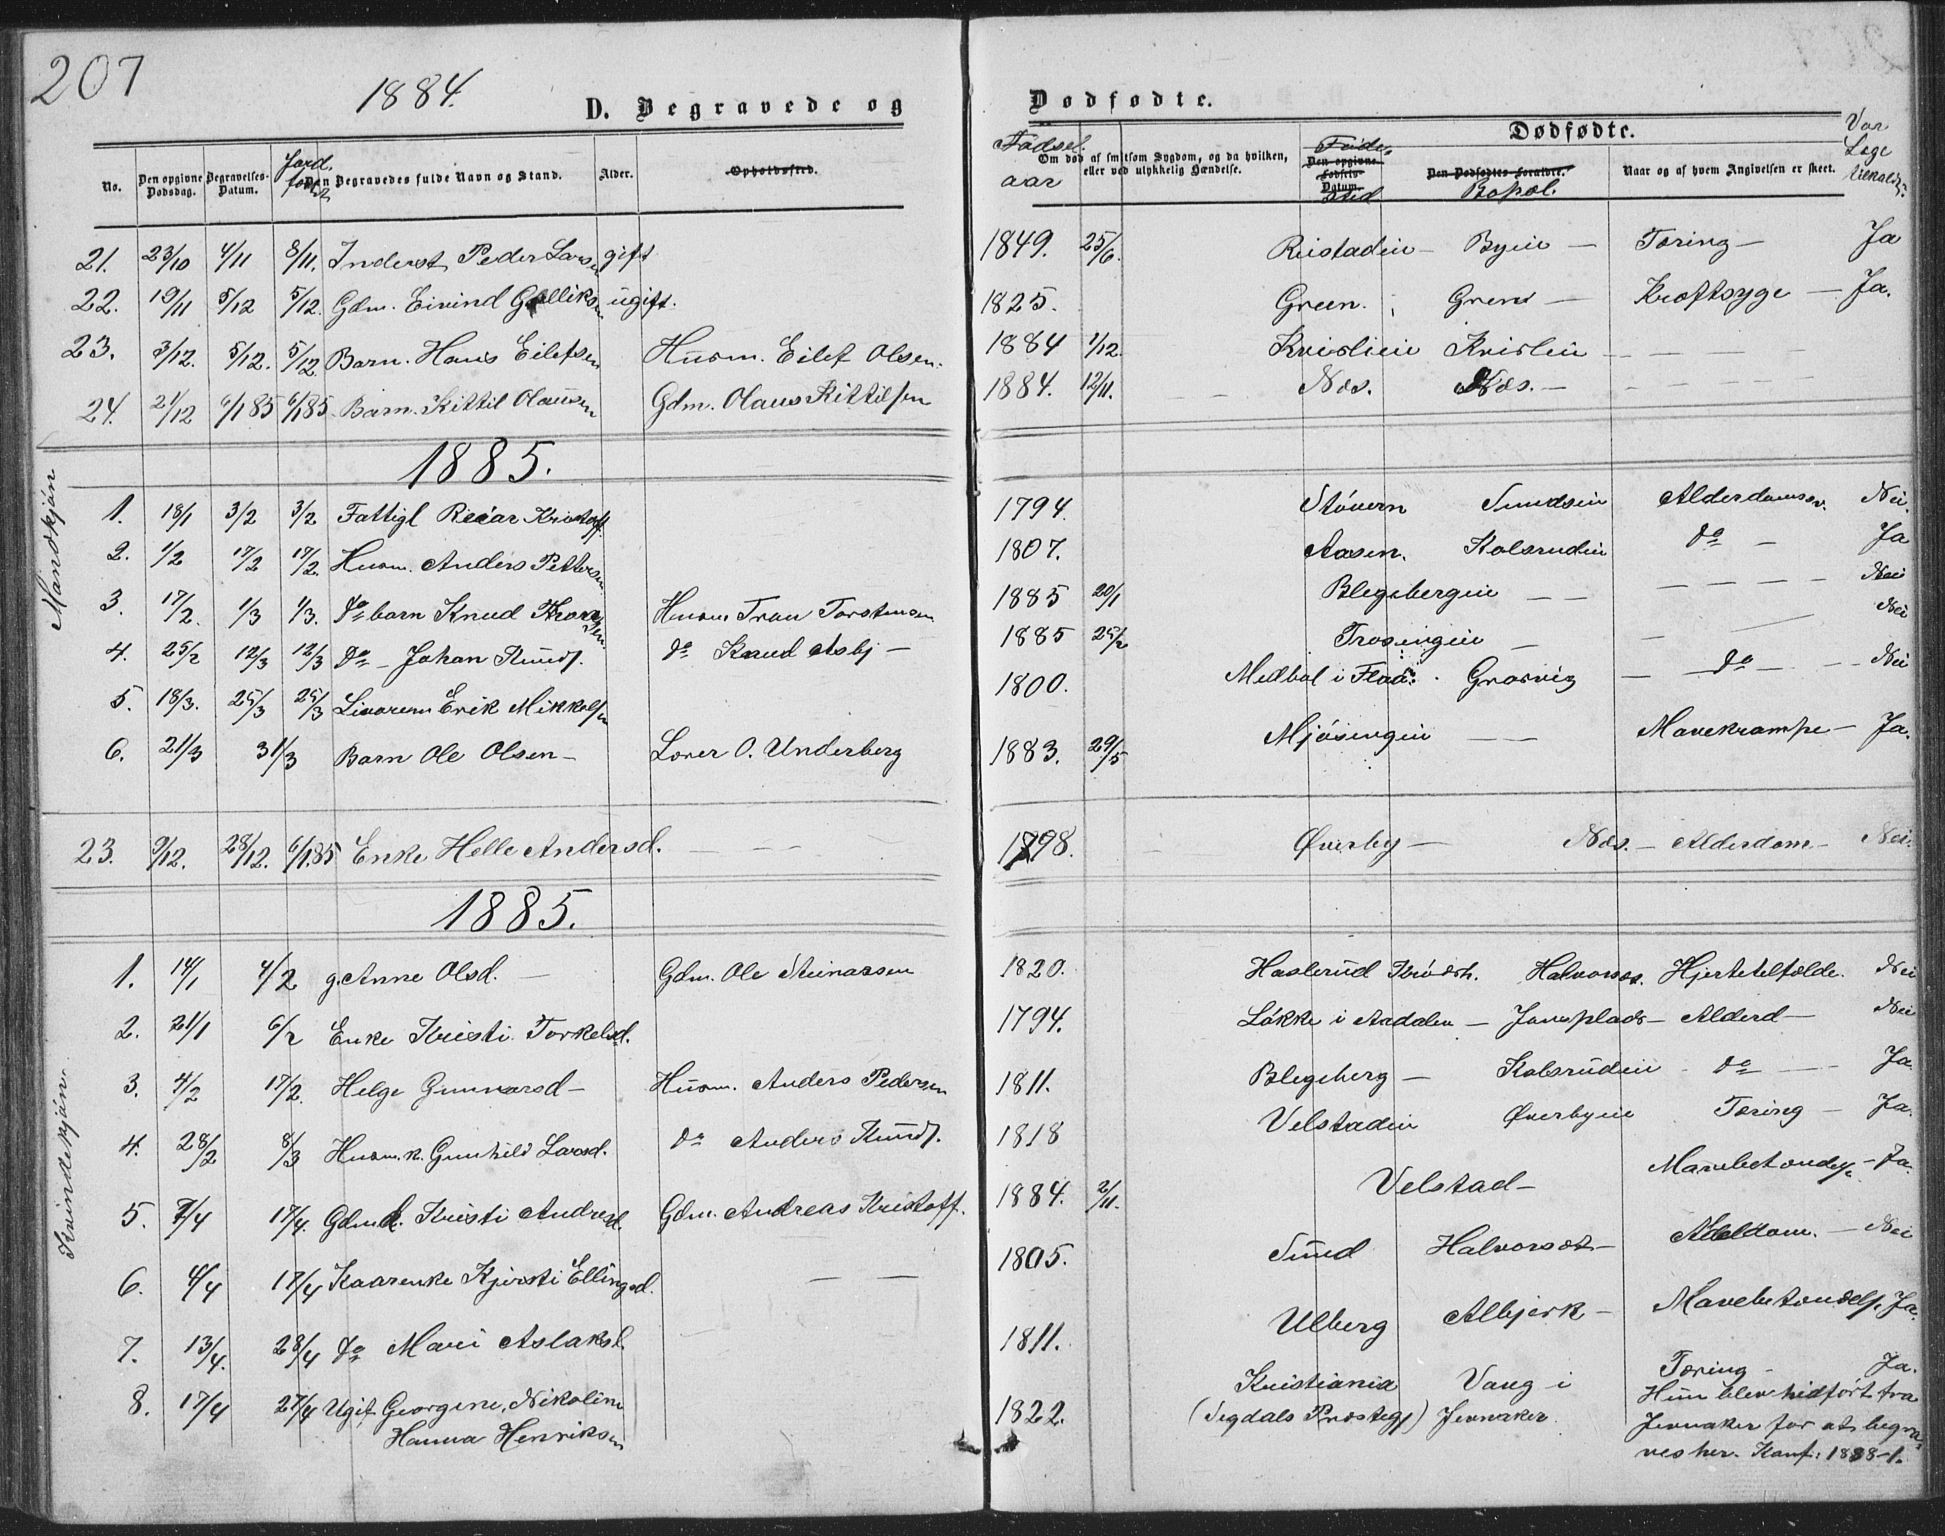 207
1884.
D. Begravede og Dødfødte.
Dødfødte.
No. Den opgivne Dødsdag. Begravelses-Datum. Jord. Den Begravedes fulde Navn og Stand. Alder. Opholdssted. Fødsel. aar Om død af smitsom Sygdom, og da hvilken, eller ved ulykkelig Hændelse. Føde- sted Den opgivne Fødsels-Datum. Den Dødfødtes Forældre. Bopæl. Naar og af hvem Angivelsen er skeet. Var Læge tilkaldt?
21. 23/10 4/11 8/11. Inderst Peder Larsen gift 1849. 25/6. Reistadeie – Byeie – Tæring – Ja
22. 19/11 5/12 5/12. Gdm. Eivind Gulliksen ugift. 1825. Green. Grens – Kræftsyge – Ja.
23. 3/12. 5/12. 5/12. Barn. Hans Eilefsen Husm. Eilef Olsen. 1884 1/12. Kvislieie Kvisleie – – –
24. 21/12 6/1 85 6/1 85 Barn. Kittil Olausen Gdm. Olaus Kittilsen 1884. 12/11. Næs. Næs. – – – –
1885.
Mandkjøn
1. 18/1 3/2 3/2 Fattigl Reiar Kristoff. 1794. Støvern Sundseie Alderdomssv. Nei.
2. 1/2 17/2 17/2. Husm. Anders Pettersen 1807. Aasen. Kolsrudeie do – Ja
3. 17/2. 1/3 1/3. do barn Knud Tronsen Husm Tron Torstensen 1885 20/1 Blegebergeie – – – – – – Nei
4. 25/2 12/3 12/3 do – Johan Knuds. do Knud Asbj – 1885 25/2 Trosengeie – – – Nei
5. 18/3. 25/3 25/3 Livørem Erik Mikkelsen 1800. Medbøl i Flaa. Græsvig – do – – – Nei
6. 21/3 31/3 Barn Ole Olsen – Lærer O. Underberg 1883. 29/5 Mjøsengeie – – Mavekrampe – Ja.
23. 9/12. 28/12. 6/1 85 Enke Helle Andersd. – – – 1798. Øverby – Næs. – Alderdom – Nei.
1885.
Kvindekjøn
1. 14/1 4/2 g. Anne Olsd. – Gdm. Ole Steinarsen 1820. Haslerud Krødsh. Halvorsæt. Hjertetilfælde. Nei
2. 21/1 6/2 Enke Kristi Torkelsd. 1794. Løkke i Aadalen – Jonsplads – Alderd – Nei
3. 4/2 17/2. Helge Gunnarsd – Husm. Anders Pedersen 1811. Blegeberg – Kolsrudeie – do – Ja
4. 28/2 8/3 Husm.k. Gunhild Larsd. do Anders Knuds. 1818 Velstadeie Øverbyeie Tæring – Ja.
5. 7/4 17/4. Gdmd. Kristi Andresd. Gdm. Andreas Kristoff. 1884. 2/11. Velstad – Mavebetændelse – Ja.
6. 4/4 17/4 Kaarenke Kjersti Ellingsd. – – 1805. Sund Halvorsæt – Alderdom. – Nei
7. 13/4. 28/4 do Mari Aslaksd. 1811. Ulberg Albjerk – Mavebetændels. Ja.
8. 17/4 27/4 Ugif. Georgine, Nikoline 1822. Kristiania Vang i Tæring – Ja.
Hanna Henriksen (Sigdals Præstegj) Jevnaker. Hun blev hidført fra
Jevnaker for at begra-
ves her. Konf: 1838–1.